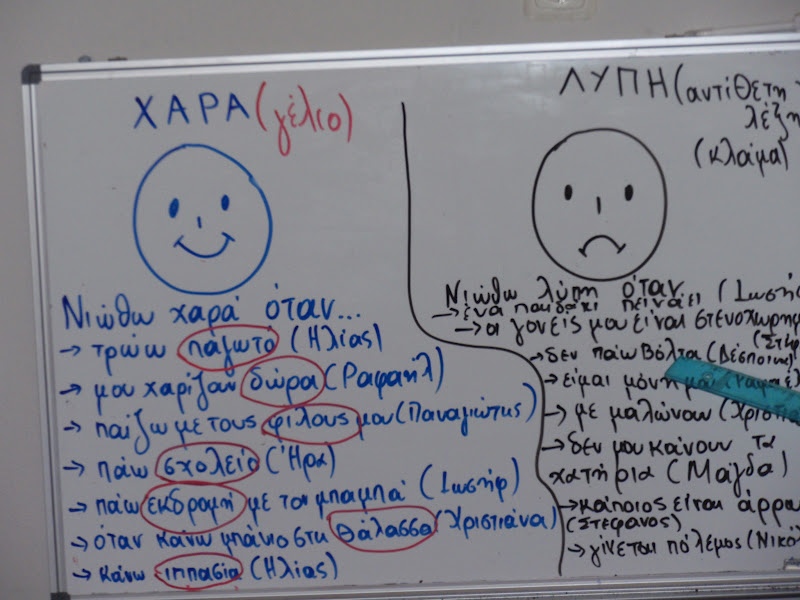 ΧΑΡΑ (γέλιο)
Νιώθω χαρά όταν...
→ τρώω παγωτό (Ηλίας)
→ μου χαρίζαν δώρα (Ραφαήλ)
→ παίζω με τους φίλους μου (Παναγιώτης)
→ πάω σχολείο (Ήρα)
→ πάω εκδρομή με τον μπαμπά (Ιωσήφ)
→ όταν κάνω μπάνιο στη θάλασσα (Χριστιάνα)
→ κάνω ιππασία (Ηλίας)
ΛΥΠΗ (αντίθετη
λέξη
(κλάμα)
Νιώθω λύπη όταν
→ ένα παιδάκι πεινάει (Ιωσήφ
→ οι γονείς μου είναι στενοχωρημ
(Στεφ
→ δεν πάω βόλτα (Δέσποινα
→ είμαι μόνη μου
→ με μαλώνουν (Χριστιά
→ δεν μου κάνουν τα
χατήρια (Μάγδα)
→ κάποιος είναι άρρω
(Στέφανος)
→ γίνεται πόλεμος (Νικό